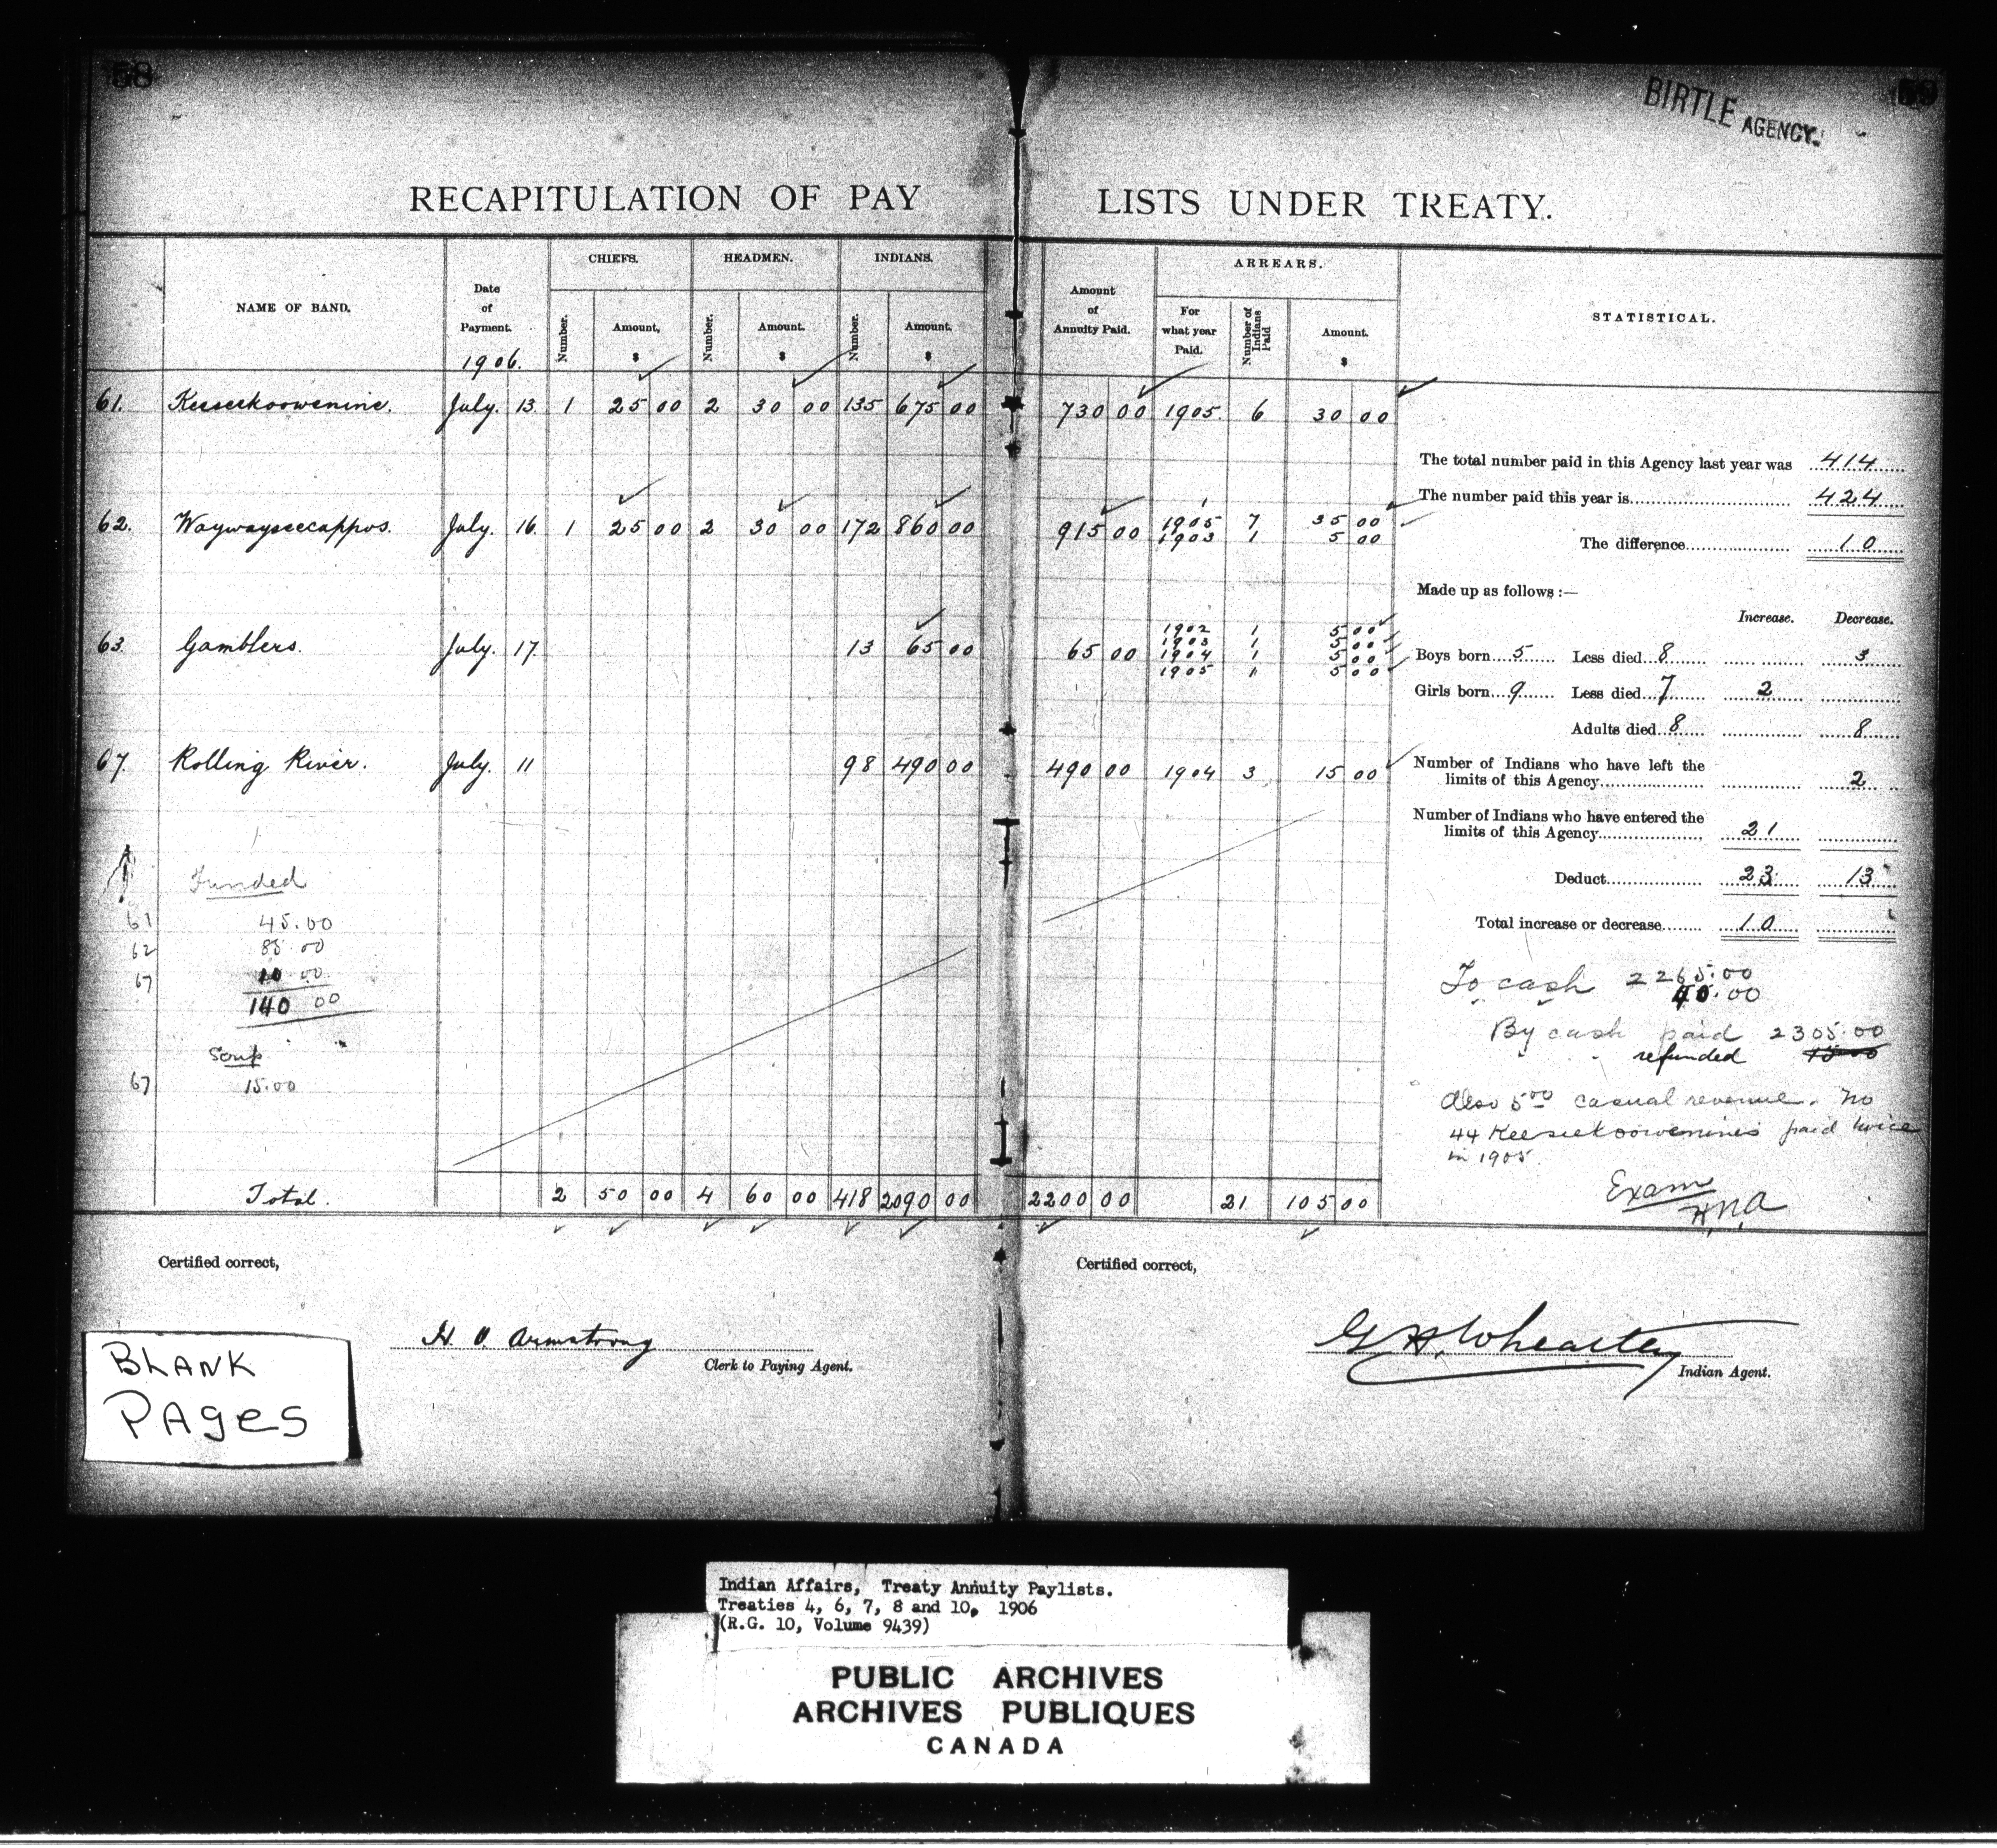 58
59
BIRTLE AGENCY.
RECAPITULATION OF PAY LISTS UNDER TREATY.
NAME OF BAND. Date of Payment. 1906. CHIEFS. Number. Amount, $ HEADMEN. Number. Amount. $ INDIANS. Number. Amount. $ Amount of Annuity Paid. ARREARS. For what year Paid. Number of Indians Paid Amount. $ STATISTICAL.
61. Keeseekoowenine. July. 13 1 25 00 2 30 00 135 675 00 730 00 1905 6 30 00
62. Waywayseecappos. July. 16 1 25 00 2 30 00 172 860 00 915 00 1905 7 35 00
1903 1 5 00
63. Gamblers. July. 17 13 65 00 65 00 1902 1 5 00
1903 1 5 00
1904 1 5 00
1905 1 5 00
67. Rolling River. July. 11 98 490 00 490 00 1904 3 15 00
Funded
61 45.00
62 85.00
67 10.00
140 00
Scrip
67 15.00
Total. 2 50 00 4 60 00 418 2090 00 2200 00 21 105 00
The total number paid in this Agency last year was 414
The number paid this year is 424
The difference 10
Made up as follows :—
Increase. Decrease.
Boys born 5 Less died 8 3
Girls born 9 Less died 7 2
Adults died 8 8
Number of Indians who have left the
limits of this Agency 2
Number of Indians who have entered the
limits of this Agency 21
Deduct 23 13
Total increase or decrease 10
To cash 2265.00
40.00
By cash paid 2305.00
" " refunded 15.00
Also 5.00 casual revenue. No
44 Keeseekoowenine's paid twice
in 1905.
Exam
H.N.A
Certified correct,
H. O. Armstrong
Clerk to Paying Agent.
Certified correct,
G H. Wheatley
Indian Agent.
BLANK
PAges
Indian Affairs, Treaty Annuity Paylists.
Treaties 4, 6, 7, 8 and 10, 1906
(R.G. 10, Volume 9439)
PUBLIC ARCHIVES
ARCHIVES PUBLIQUES
CANADA